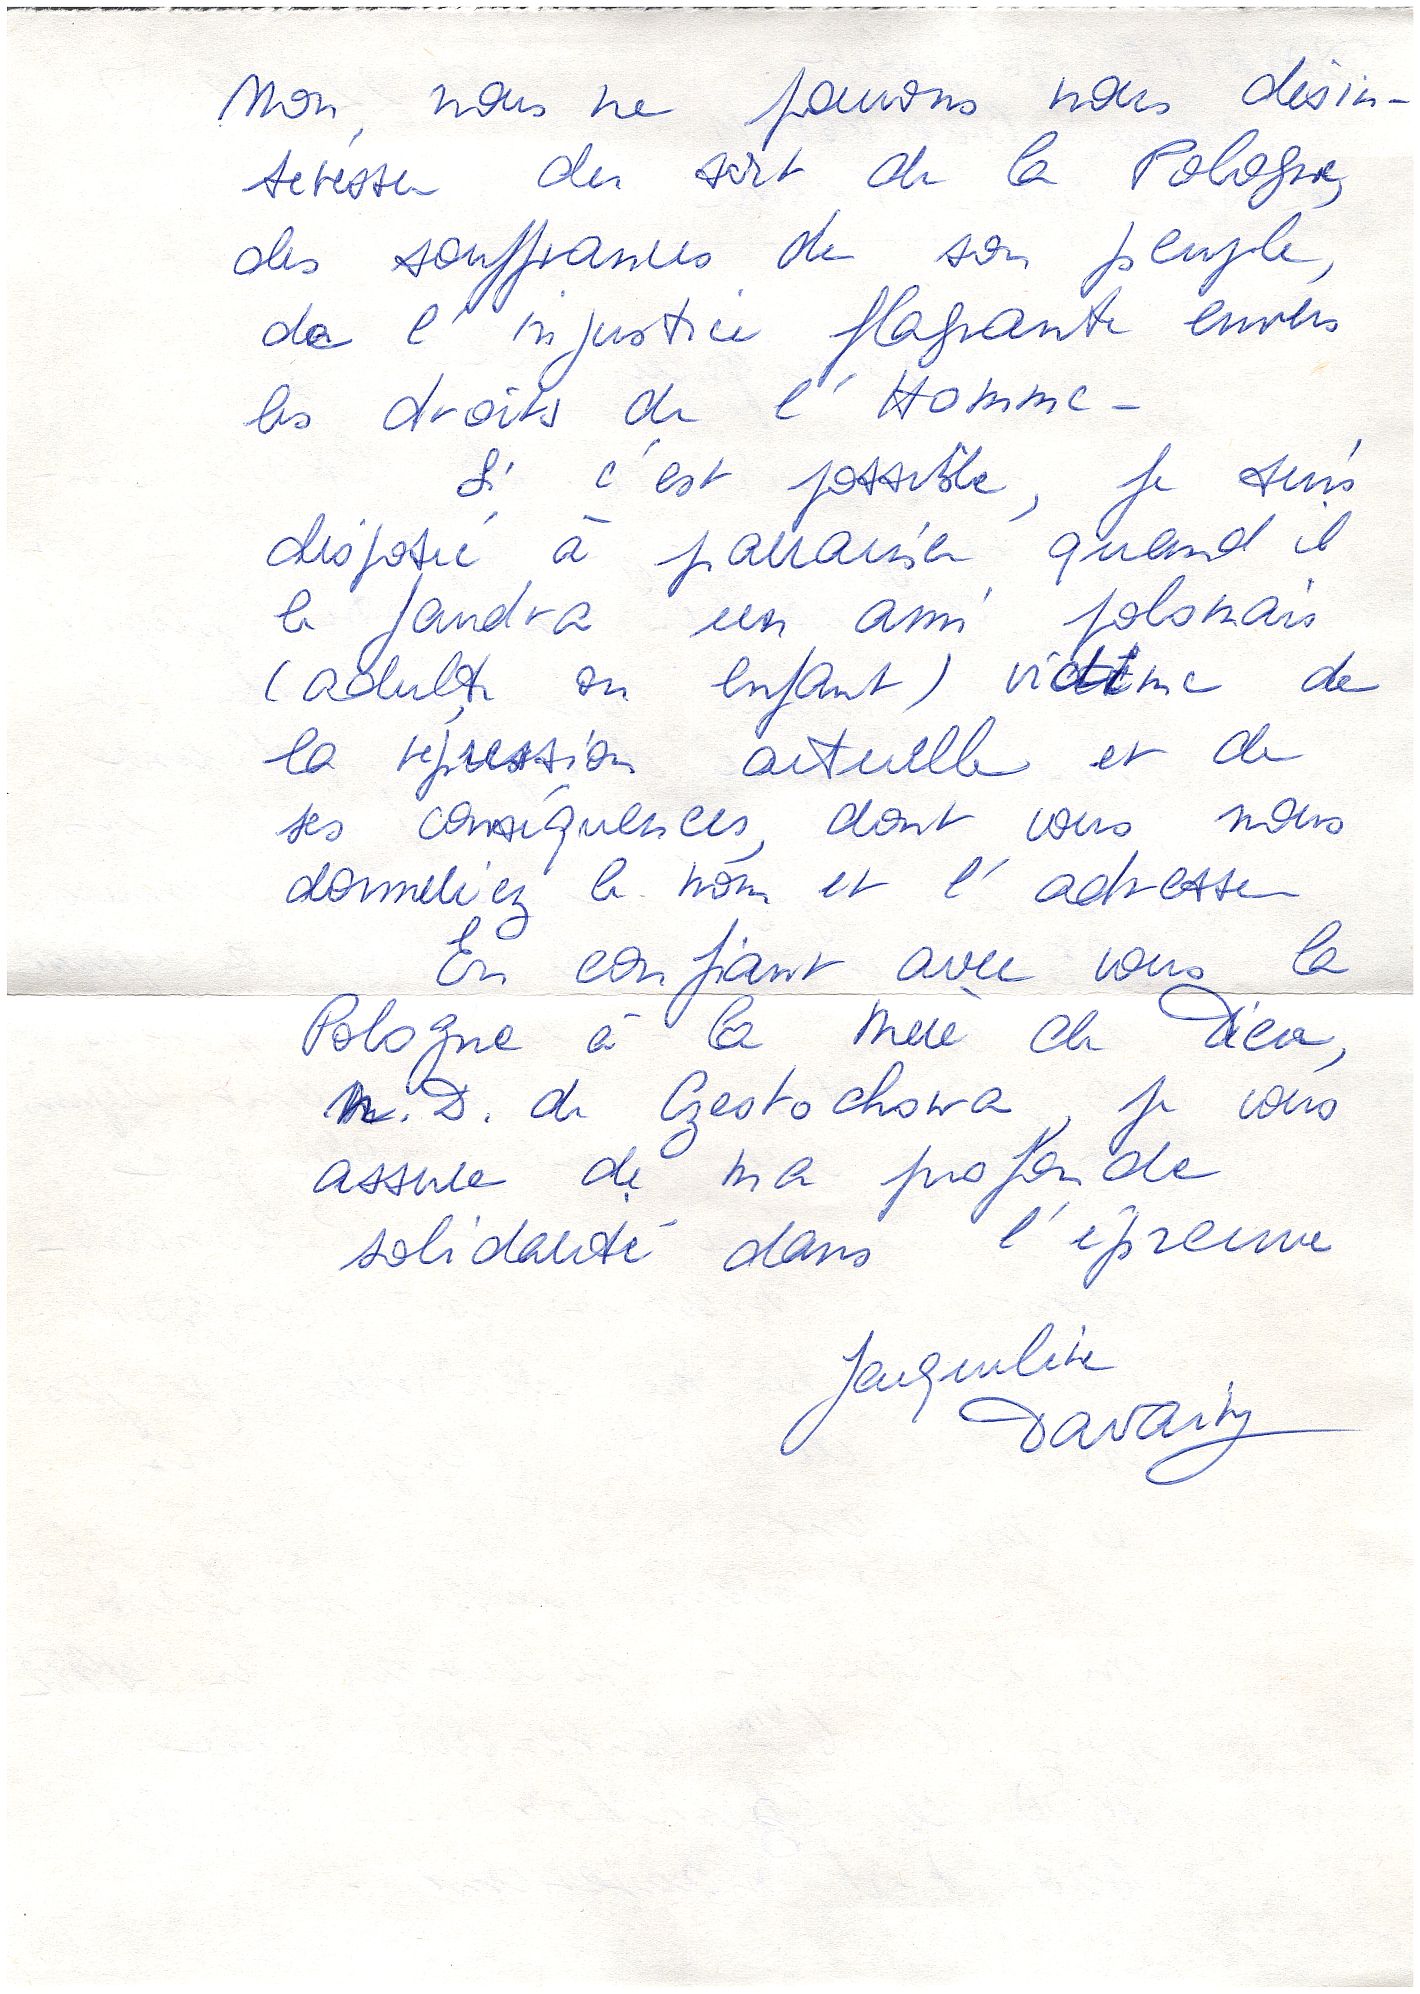 Non, nous ne pouvons nous désin-
téresser du sort de la Pologne,
des souffrances de son peuple,
de l'injustice flagrante envers
les droits de l'Homme -
Si c'est possible, je suis
disposée à parrainer quand il
le faudra un ami polonais
(adulte ou enfant) victime de
la répression actuelle et de
ses conséquences, dont vous nous
donneriez le nom et l'adresse
En confiant avec vous la
Pologne à la Mère de Dieu,
N.D. de Czestochowa, je vous
assure de ma profonde
solidarité dans l'épreuve
Jacqueline